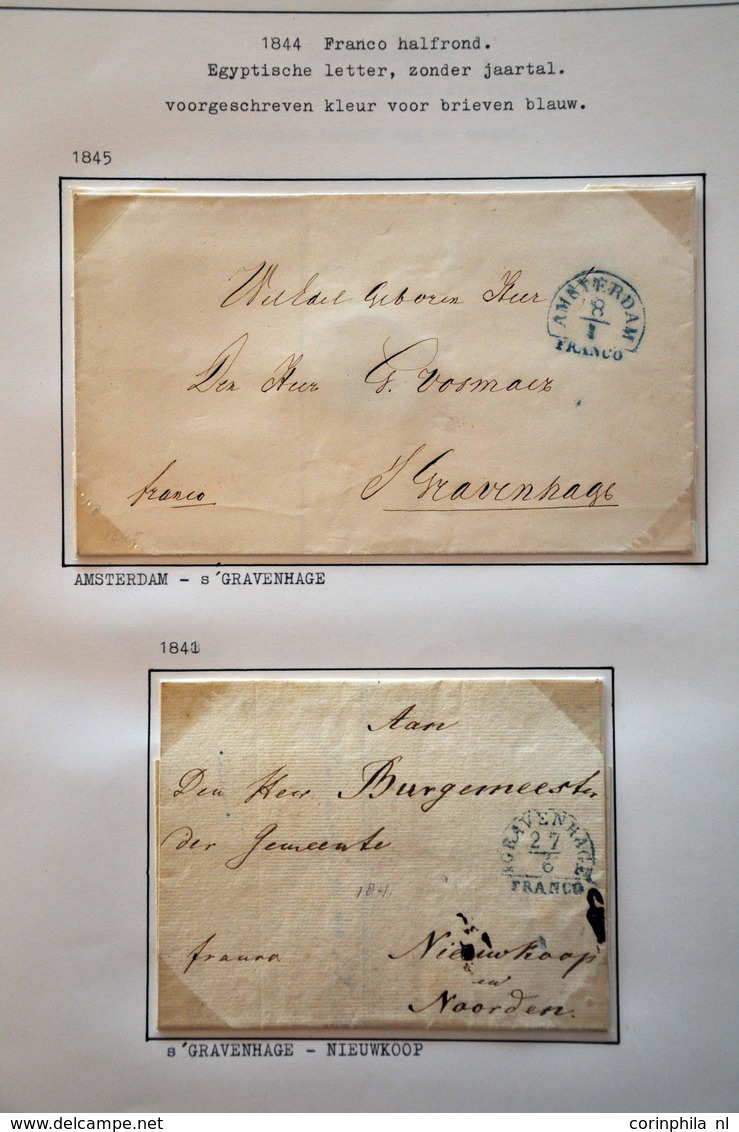 1844 Franco halfrond.
Egyptische letter, zonder jaartal.
voorgeschreven kleur voor brieven blauw.
1845
WelEdel Geboren Heer
AMSTERDAM
8
1
FRANCO
Den Heer G. Vosmaer
franco
S Gravenhage
AMSTERDAM - s'GRAVENHAGE
Aan
Den Heer Burgemeester
der Gemeente
SGRAVENHAGE
27
6
FRANCO
1841
franco
Nieuwkoop
en
Noorden.
s'GRAVENHAGE - NIEUWKOOP
corinphila nl